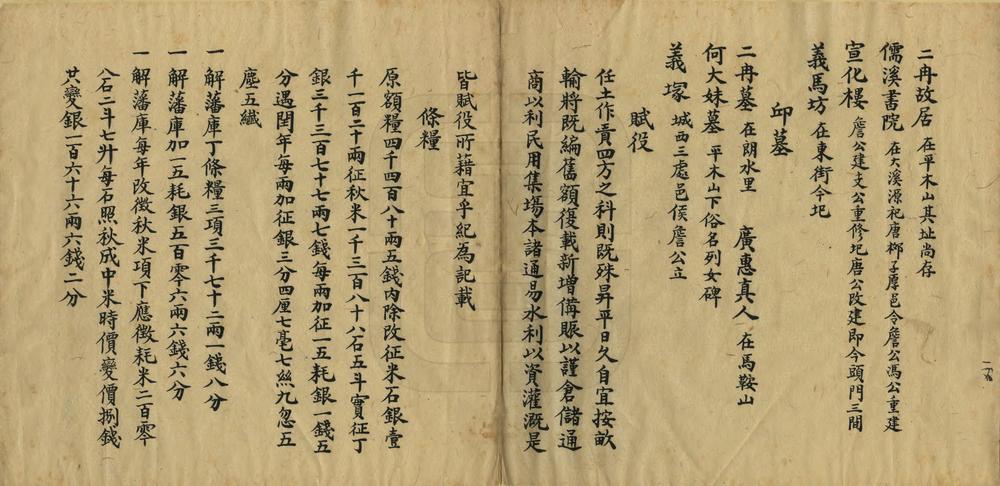 二冉故居 在平木山其址尚存
儒溪書院 在大溪源祀唐柳子厚邑令詹公馮公重建
宣化樓 詹公建支公重修圮唐公改建即今頭門三間
義馬坊 在東街今圮
邱墓
二冉墓 在朗水里 廣惠真人 在馬鞍山
何大妹墓 平木山下俗名列女碑
義塚 城西三處邑侯詹公立
賦役
任土作貢四方之科則既殊昇平日久自宜按畝
輸將既編舊額復載新增備賑以謹倉儲通
商以利民用集場本諸通易水利以資灌溉是
皆賦役所藉宜乎紀為記載
條糧
原額糧四千四百八十兩五錢內除改征米石銀壹
千一百二十兩征秋米一千三百八十八石五斗實征丁
銀三千三百七十七兩七錢每兩加征一五耗銀一錢五
分遇閏年每兩加征銀三分四厘七毫七絲九忽五
塵五纖
一解藩庫丁條糧三項三千七十二兩一錢八分
一解藩庫加一五耗銀五百零六兩六錢六分
一解藩庫每年改徵秋米項下應徵耗米二百零
八石二斗七升每石照秋成中米時價變價捌錢
共變銀一百六十六兩六錢二分